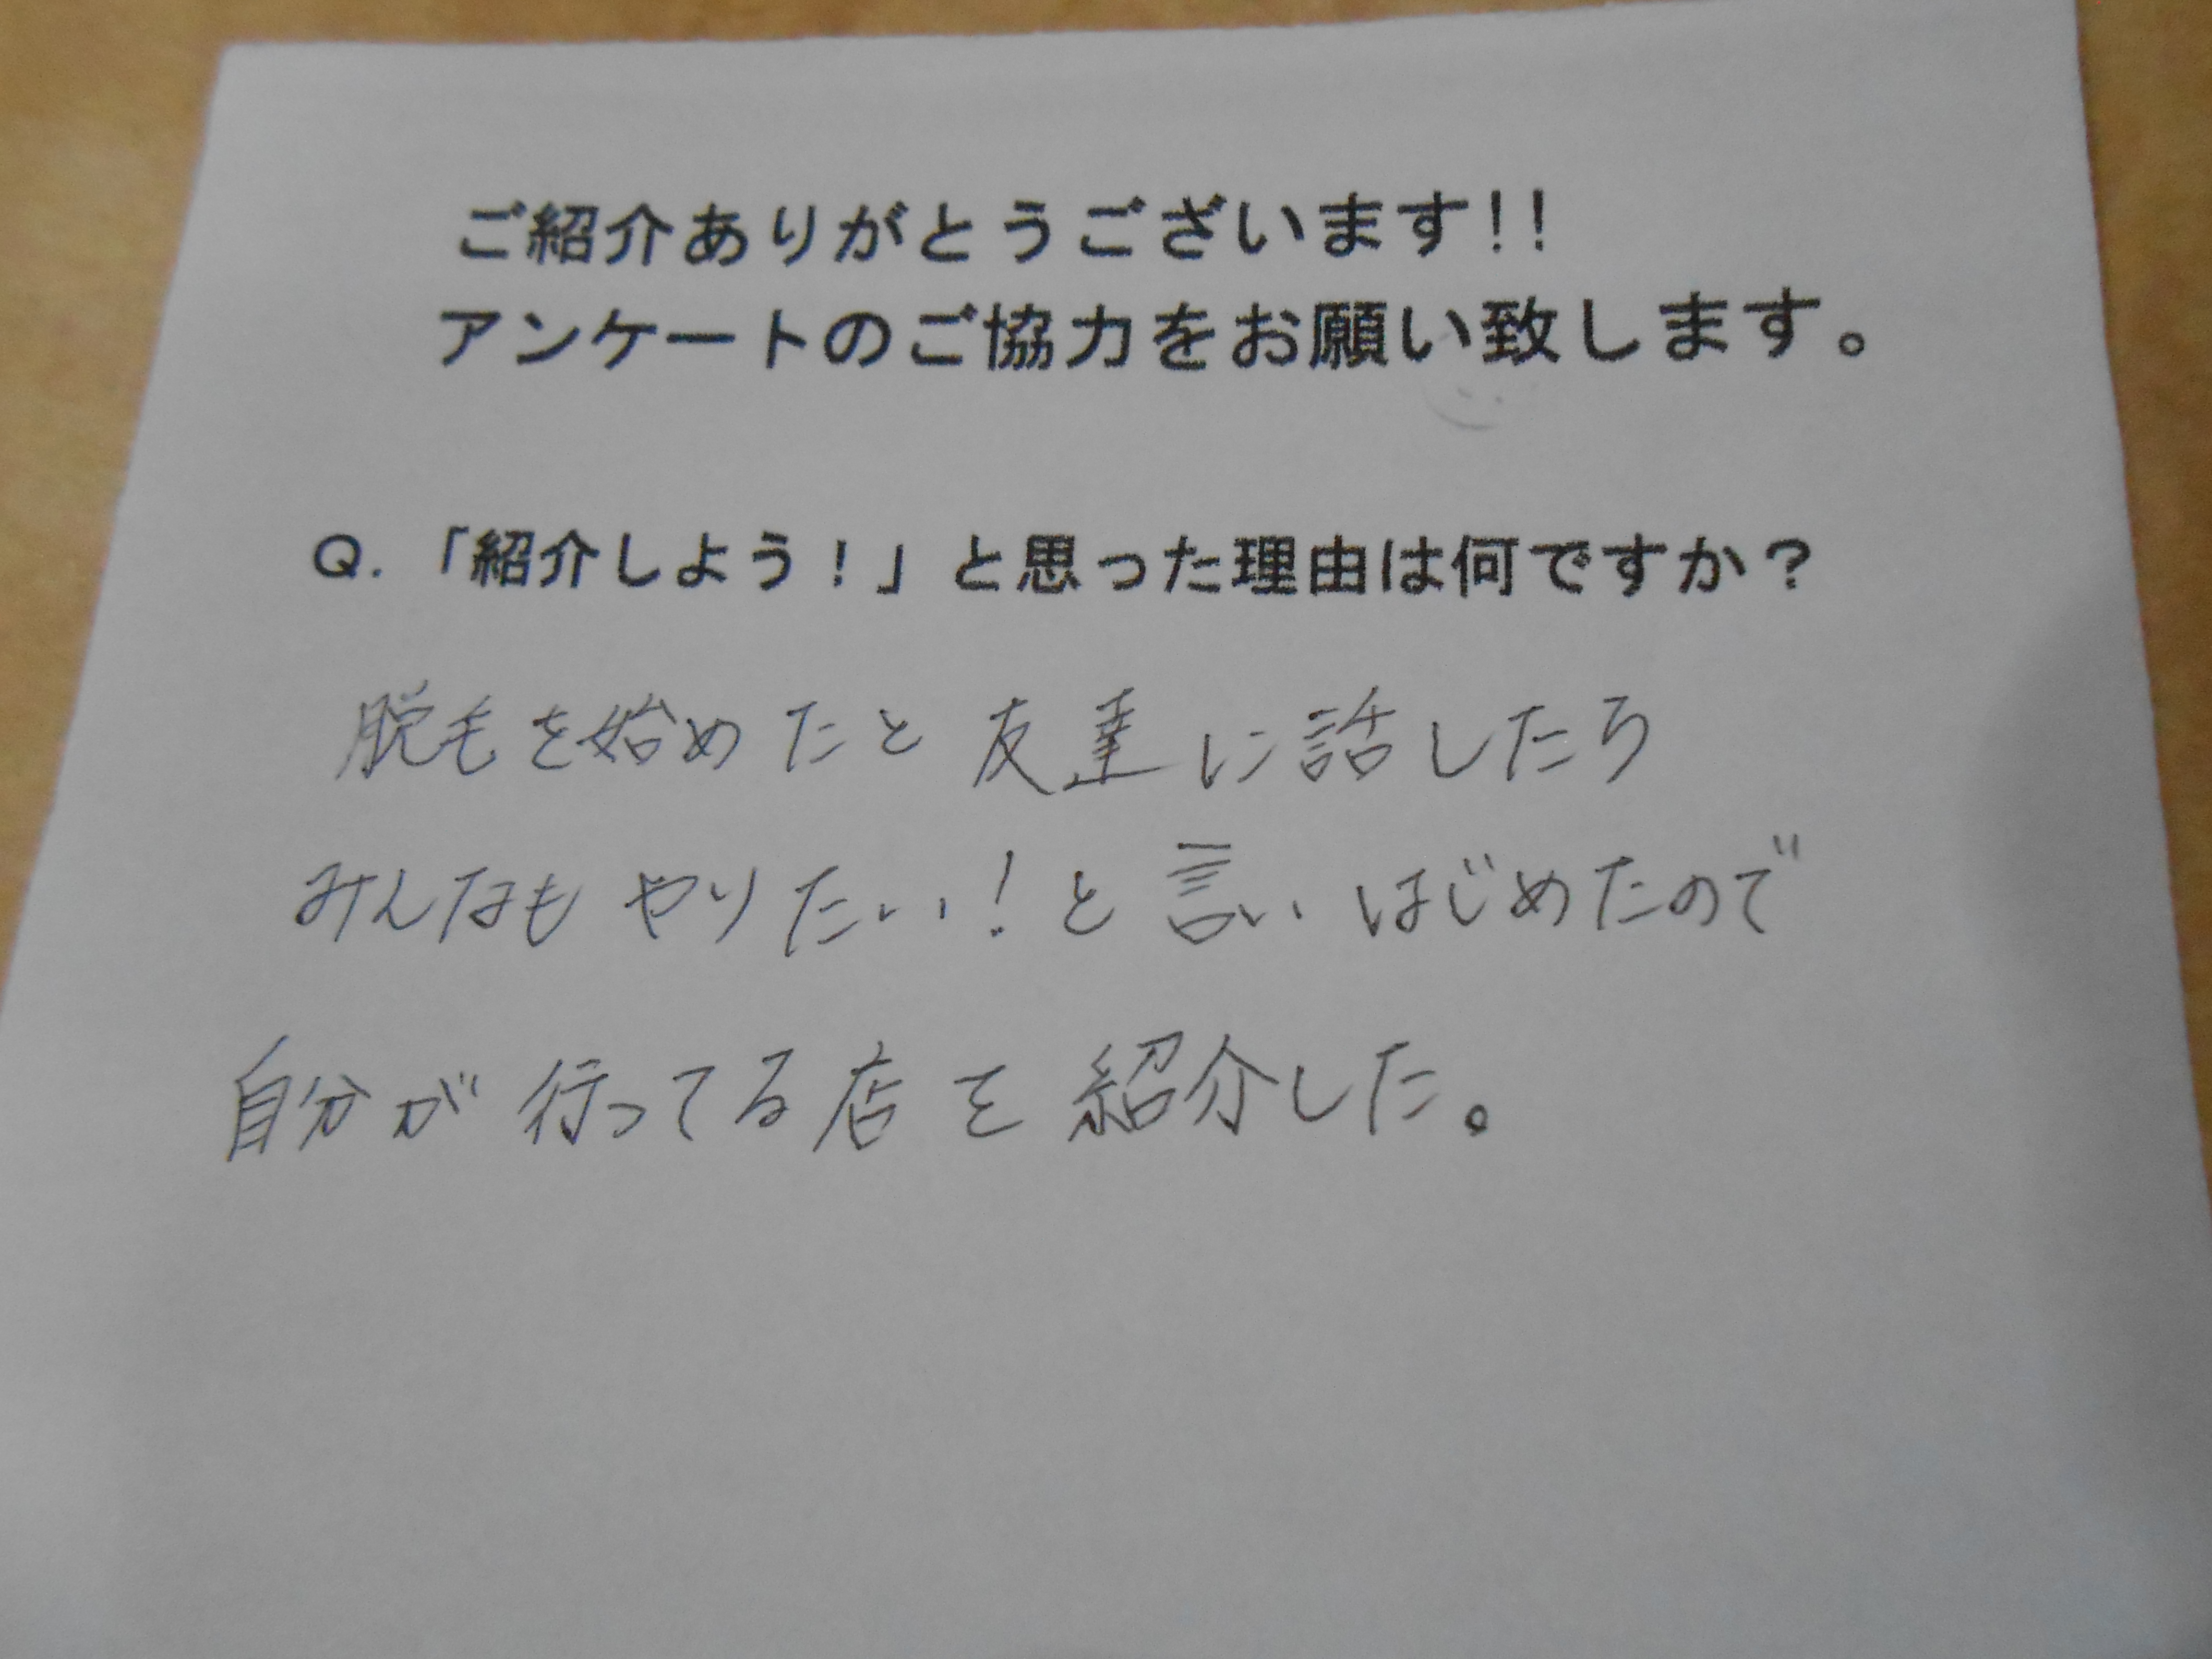 ご紹介ありがとうございます!!
アンケートのご協力をお願い致します。
Q.「紹介しよう!」と思った理由は何ですか?
脱毛を始めたと友達に話したら
みんなもやりたい!と言いはじめたので
自分が行ってる店を紹介した。